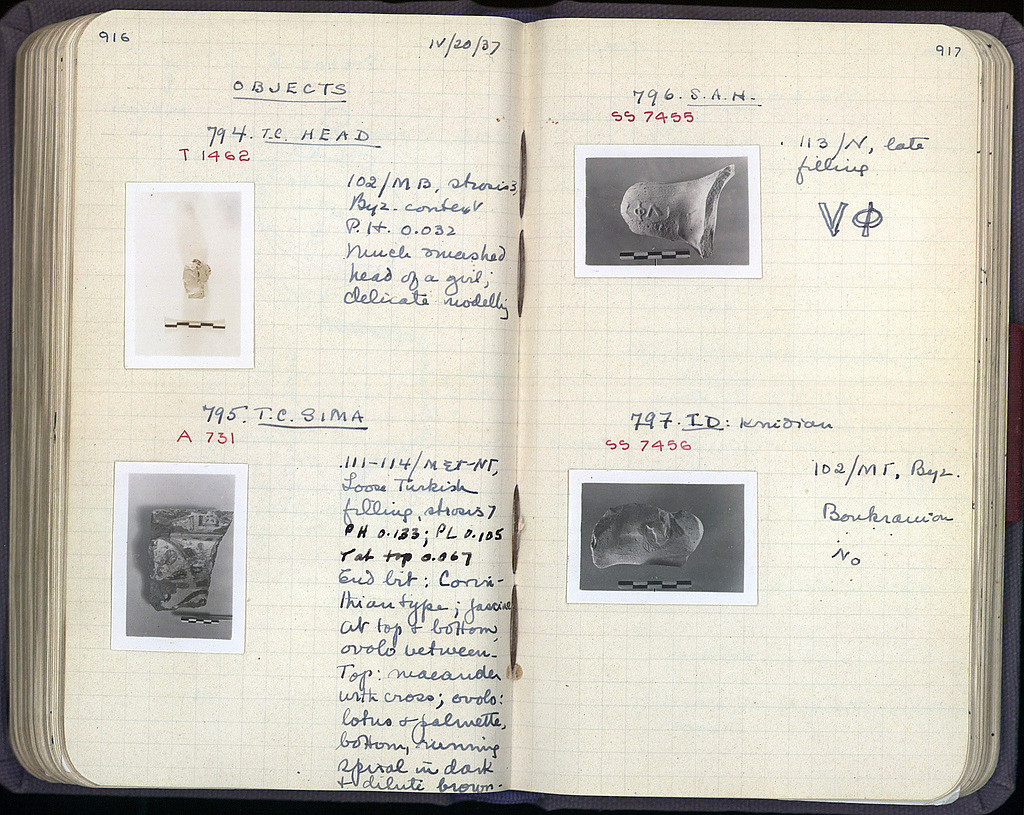 916
IV/20/37
OBJECTS
794. T.C. HEAD
T 1462
102/MB, strosis 3,
Byz. context
P.H. 0.032
Much smashed
head of a girl;
delicate modelling
795. T.C. SIMA
A 731
111-114/ NT,
Loose Turkish
filling, strosis 7
PH 0.133; PL 0.105
T at top 0.067
End bit: Corin-
thian type; fasciae
at top & bottom,
ovolo between.
Top: maeander
with cross; ovolo:
lotus & palmette,
bottom, running
spiral in dark
& dilute brown.
917
796. S.A.H.
SS 7455
113/N, late
filling
VΦ
ΦΛ
797. I.D: Knidian
SS 7456
102/MΓ, Byz.
Boukranion
No